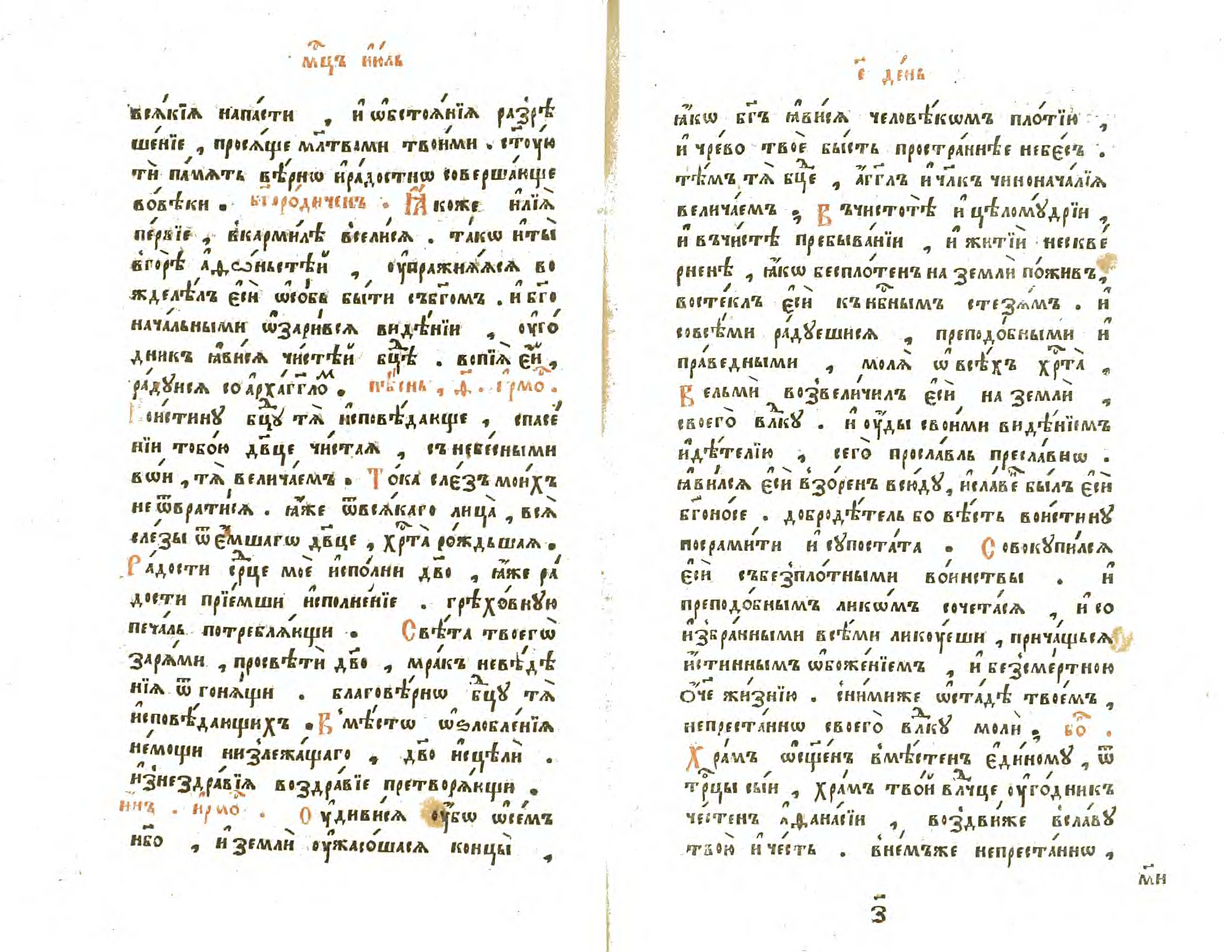 мⷭ҇цъ і҆ю́ль
всѧ́кїѧ напа́сти , и҆ ѡ҆бстоѧ́нїѧ разрѣ
ше́нїе , просѧ́ще мл҃твами твои́ми . ст҃ꙋ́ю
тѝ па́мѧть вѣ́рнѡ и҆ра́достнѡ соверша́юще
во́вѣки . бг҃оро́диченъ . Ꙗ҆́коже и҆лїѧ̀
пе́рвїе , в̾карми́лѣ всели́сѧ . та́кѡ и҆ты̀
в̾горѣ̀ а҆ѳѡ́ньстѣй , ᲂу҆пражнѧ́ѧсѧ во
жделѣ́лъ є҆сѝ ѡ҆со́бь бы́ти събг҃омъ . и҆ бг҃о
нача́льными ѡ҆зари́всѧ видѣ́нїи , ᲂу҆го́
дникъ ꙗ҆ви́сѧ чи́стѣй бцⷣѣ . вопїѧ̀ є҆́й ,
ра́дꙋисѧ со а҆рха́гг҃лоⷨ . пѣ́снь , д҃ . і҆рмоⷭ҇ .
Вои́стинꙋ бцⷣꙋ тѧ̀ и҆сповѣ́дающе , спасе́
нїи тобо́ю дв҃це чи́стаѧ , съ небе́сными
во́и , тѧ̀ велича́емъ . То́ка сле́зъ мои́хъ
не ѿврати́сѧ . ꙗ҆́же ѿвсѧ́каго лица̀ , всѧ̀
сле́зы ѿе́мшагѡ дв҃це , хрⷭ҇та̀ ро́ждьшаѧ .
Ра́дости ср҃це моѐ и҆спо́лни дв҃о , ꙗ҆́же ра́
дости прїе́мши и҆сполне́нїе . грѣхо́внꙋю
печа́ль потреблѧ́ющи . Свѣ́та твоегѡ̀
зарѧ́ми , просвѣтѝ дв҃о , мра́къ невѣ́дѣ
нїѧ ѿ гонѧ́щи . благовѣ́рнѡ бцⷣꙋ тѧ̀
и҆сповѣ́дающихъ . В̾мѣ́стѡ ѡ҆ѕлобле́нїѧ
не́мощи низ̾лежа́щаго , дв҃о и҆сцѣлѝ .
и҆знездра́вїѧ воздра́вїе претворѧ́ющи .
ин҃ъ . і҆рмоⷭ҇ . Оу҆диви́сѧ ᲂу҆́бѡ ѡ҆се́мъ
нб҃о , и҆ землѝ ᲂу҆жасо́шасѧ концы̀ ,
е҃ де́нь
ꙗ҆́кѡ бг҃ъ ꙗ҆ви́сѧ человѣ́кѡмъ пло́тїю ,
и҆ чре́во твоѐ бы́сть простра́ннѣе небе́съ .
тѣ́мъ тѧ̀ бцⷣе , а҆́гг҃лъ и҆ чл҃къ чинонача́лїѧ
велича́емъ , В̾ъчистотѣ̀ и҆ цѣломꙋ́дрїи ,
и҆ въчи́стѣ пребыва́нїи , и҆ житїѝ нескве́
рненѣ , ꙗ҆́кѡ беспло́тенъ на землѝ по́живъ ,
восте́клъ є҆сѝ къ нб҃нымъ стезѧ́мъ . и҆
совсѣ́ми ра́дꙋешисѧ , преподо́бными и҆
пра́ведными , молѧ̀ ѡ҆ всѣ́хъ хрⷭ҇та̀ ,
Вельмѝ возвели́чилъ є҆сѝ на землѝ ,
своего̀ влⷣкꙋ . и҆ ᲂу҆́ды свои́ми видѣ́нїемъ
и҆дѣ́телїю , сего̀ просла́вль пресла́внѡ .
ꙗ҆ви́лсѧ є҆сѝ взо́ренъ всю́дꙋ , и҆сла́венъ бы́лъ є҆сѝ
бг҃оно́се . добродѣ́тель бо вѣ́сть вои́стинꙋ
посрами́ти и҆ сꙋпоста́та . Совокꙋпи́лсѧ
є҆сѝ съ̾безпло́тными во́инствы . и҆
преподо́бнымъ ли́кѡмъ сочета́сѧ , и҆ со
и҆збра́нными всѣ́ми ликꙋ́еши , прича́щьсѧ
и҆́стиннымъ ѡ҆боже́нїемъ , и҆ безсме́ртною
ѻ҆́ч҃е жи́знїю . сни́миже ѡ҆ста́дѣ твое́мъ ,
непреста́ннѡ своего̀ влⷣкꙋ молѝ , боⷢ҇ .
Хра́мъ ѡ҆сщ҃е́нъ в̾мѣ́стенъ є҆ди́номꙋ , ѿ
трⷪ҇цы сы́и , хра́мъ тво́й влⷣчце ᲂу҆го́дникъ
че́стенъ а҆ѳана́сїи , воздви́же в̾сла́вꙋ
твою̀ и҆ че́сть . в̾не́мъже непреста́ннѡ ,
мⷭ҇и
з҃